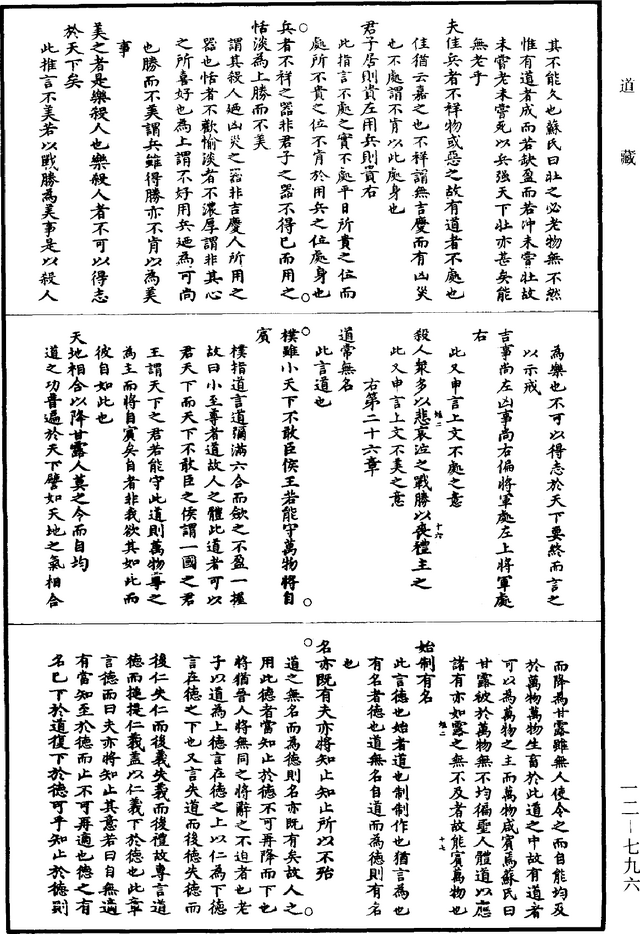 道藏
其不能久也蘇氏曰壯之必老物無不然
惟有道者成而若缺盈而若沖未嘗壯故
未嘗老未嘗死以兵强天下壯亦甚矣能
無老乎
夫佳兵者不祥物或惡之故有道者不處也
佳猶云嘉之也不祥謂無吉慶而有凶災
也不處謂不肯以此處身也
君子居則貴左用兵則貴右
此指言不處之實不處平日所貴之位而
處所不貴之位不肯於用兵之位處身也
兵者不祥之器非君子之器不得已而用之
恬淡為上勝而不美
謂其殺人廼凶災之器非吉慶人所用之
器也恬者不歡愉淡者不濃厚謂非其心
之所喜好也為上謂不好用兵廼為可尚
也勝而不美謂兵雖得勝亦不肯以為美
事
美之者是樂殺人也樂殺人者不可以得志
於天下矣
此推言不美若以戰勝為美事是以殺人
為樂也不可以得志於天下要終而言之
以示戒
吉事尚左凶事尚右偏將軍處左上將軍處
右
此又申言上文不處之意
殺人衆多以悲哀泣之戰勝以喪禮主之
此又申言上文不美之意
右第二十六章
道常無名
此言道也
樸雖小天下不敢臣侯王若能守萬物將自
賓
樸指道言道彌滿六合而斂之不盈一握
故曰小至尊者道故人之體此道者可以
君天下而天下不敢臣之侯謂一國之君
王謂天下之君若能守此道則萬物尊之
為主而將自賓矣自者非我欲其如此而
彼自如此也
天地相合以降甘露人莫之令而自均
道之功普遍於天下譬如天地之氣相合
而降為甘露雖無人使令之而自能均及
於萬物萬物生畜於此道之中故有道者
可以為萬物之主而萬物咸賓焉蘇氏曰
甘露被於萬物無不均徧聖人體道以應
諸有亦如露之無不及者故能賓萬物也
始制有名
此言德也始者道也制制作也猶言為也
有名者德也道無名自道而為德則有名
也
名亦既有夫亦將知止知止所以不殆
道之無名而為德則名亦既有矣故人之
用此德者當知止於德不可再降而下也
將猶晉人將無同之將辭之不迫者也老
子以道為上德言在德之上以仁為下德
言在德之下也又言失道而後德失德而
後仁失仁而後義失義而後禮故專言道
德而捶提仁義蓋以仁義下於德也此章
言德而曰夫亦將知止其意若曰自無適
有當知至於德而止不可再適也德之有
名已下於道復下於德可乎知止於德則
一二—七九六